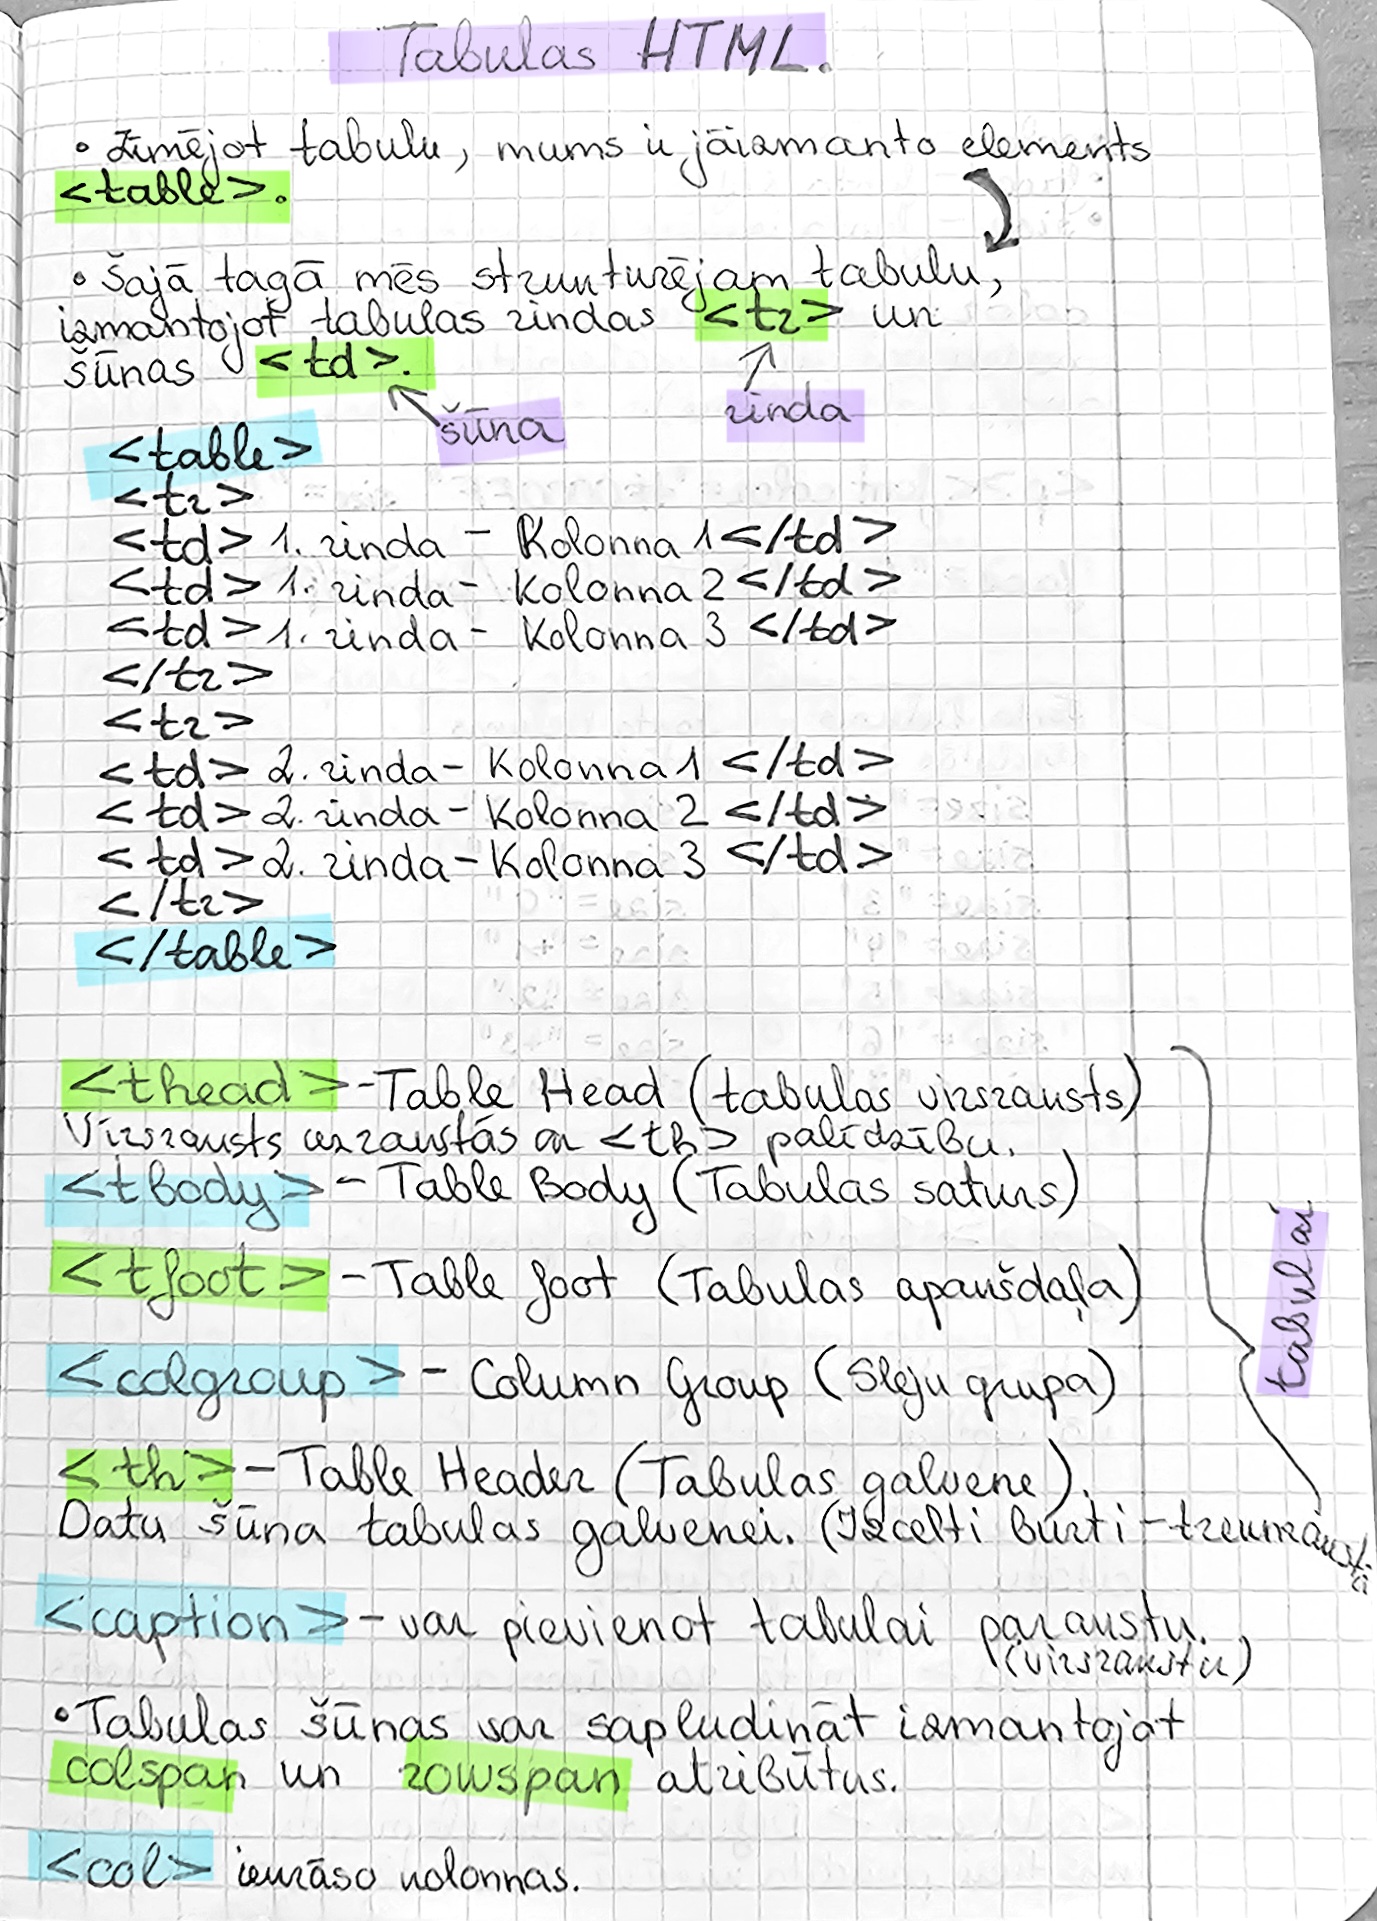 Tabulas HTML.
• Zīmējot tabulu, mums ir jāizmanto elements
<table>.
• Šajā tagā mēs strukturējam tabulu,
izmantojot tabulas rindas <tr> un
šūnas <td>.
šūna
rinda
<table>
<tr>
<td> 1. rinda - Kolonna 1 </td>
<td> 1. rinda - Kolonna 2 </td>
<td> 1. rinda - Kolonna 3 </td>
</tr>
<tr>
<td> 2. rinda - Kolonna 1 </td>
<td> 2. rinda - Kolonna 2 </td>
<td> 2. rinda - Kolonna 3 </td>
</tr>
</table>
<thead> - Table Head (tabulas virsraksts)
Virsraksts uzrakstās ar <th> palīdzību.
<tbody> - Table Body (Tabulas saturs)
<tfoot> - Table foot (Tabulas apakšdaļa)
<colgroup> - Column Group (Sleju grupa)
<th> - Table Header (Tabulas galvene).
Datu šūna tabulas galvenei. (Izcelti burti - treknraksti
tabulai
<caption> - var pievienot tabulai parakstu.
(virsrakstu)
• Tabulas šūnas var sapludināt izmantojot
colspan un rowspan atribūtus.
<col> iekrāso kolonnas.